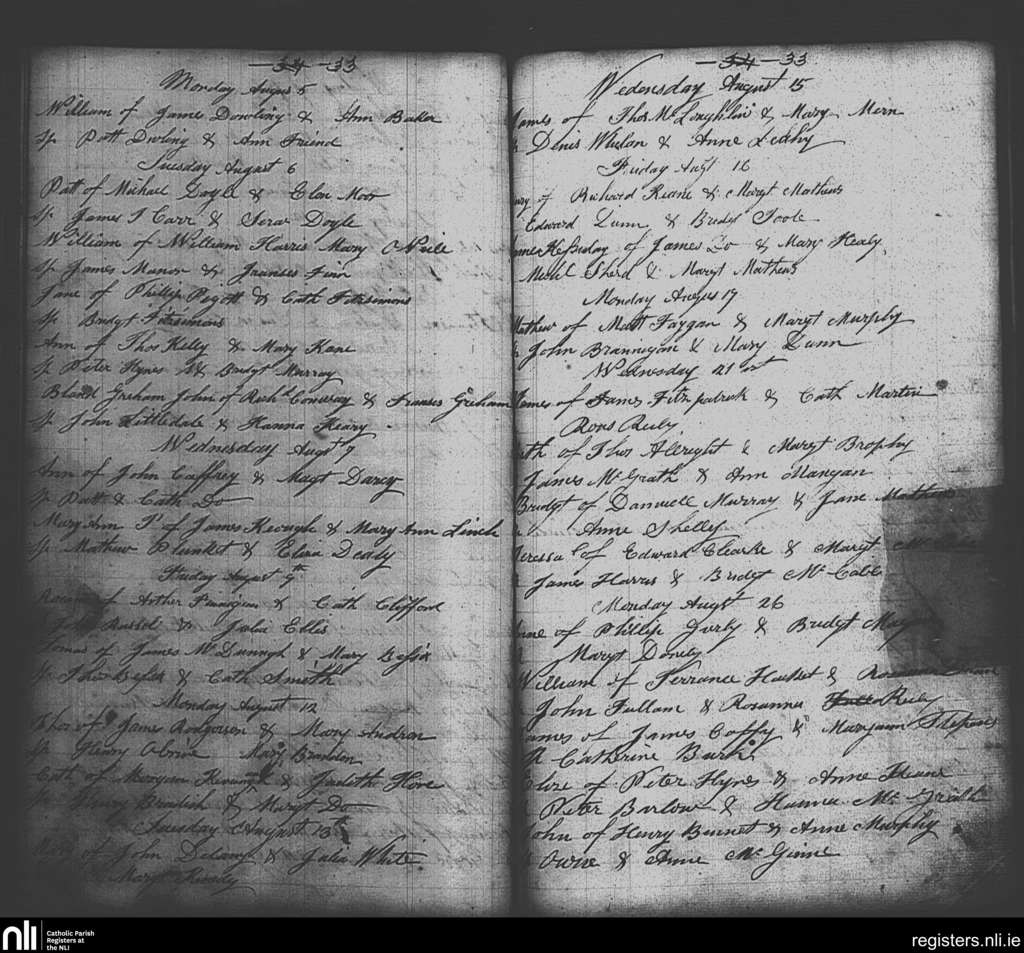 34 - 33
Monday August 5
William of James Dowling & Ann Baker
Sp Patt Dwling & Ann Friend
Tuesday August 6
Patt of Michael Doyle & Elen Moor
Sp James T Carr & Sera Doyle
William of William Harris Mary ONeile
Sp James Manor & Frances Finn
Jane of Phillip Pigott & Cath Fitzsimons
Sp Bridgt Fitzsimons
Ann of Thos Kelly & Mary Kane
Sp Peter Hynes & Bridgt Murray
Bland Greham John of Richd Conway & Frances Greham
Sp John Littledale & Hanna Keary
Wednesday Augst 7
Ann of John Caffrey & Magt Darcy
Sp Patt & Cath Do
Mary Ann of James Keough & Mary Ann Linch
Sp Mathew Plunket & Elena Dealy
Friday August 9th
of Arther Finnigan & Cath Clifford
Russel & Julia Ellis
Thomas of James McDunngh & Mary
Sp Thos & Cath Smith
Monday August 12
Thos of James Rodgerson & Mary Andron
Sp Henry Obrine Mary Bradden
Cath of & Judeth Hore
Henry Bradish & Margt Do
Tuesday August 13th
of John Delany & Julia White
Margt
34 - 33
Wedensday August 15
James of Thos McLoughlin & Mary Mern
Denis Whelon & Anne Leahy
Friday Augt 16
of Richard Keane & Margt Mathews
Edward Dunn & Bridgt Toole
of James Do & Mary Healy
Michl Sherd & Margt Mathews
Monday Augus 19
Mathew of Matt Faygan & Margt Murphy
John Brannigan & Mary Dunn
Wednesday 21st
James of James Fitzpatrick & Cath Martin
Roas Reily
of Thos Albright & Margt Brophy
James McGrath & Ann Mangan
Bridgt of Dannuell Murray & Jane Mathews
Anne Shelly
Teressa of Edward Clearke & Margt
James Harris & Bridgt McCabe
Monday Augst 26
Anne of Phillip Darby & Bridgt
Margt Donely
William of Terrance Hacket &
John Fullam & Rosanna Reily
James of James Coffy & Maryann
Catherine Burk
Elize of Peter Hynes & Anne Keane
Peter Barlow & Hanna McGrath
John of Henry Binnet & Anne Murphy
Owne & Anne McGinne
nli
Catholic Parish
Registers at
the NLI
registers.nli.ie